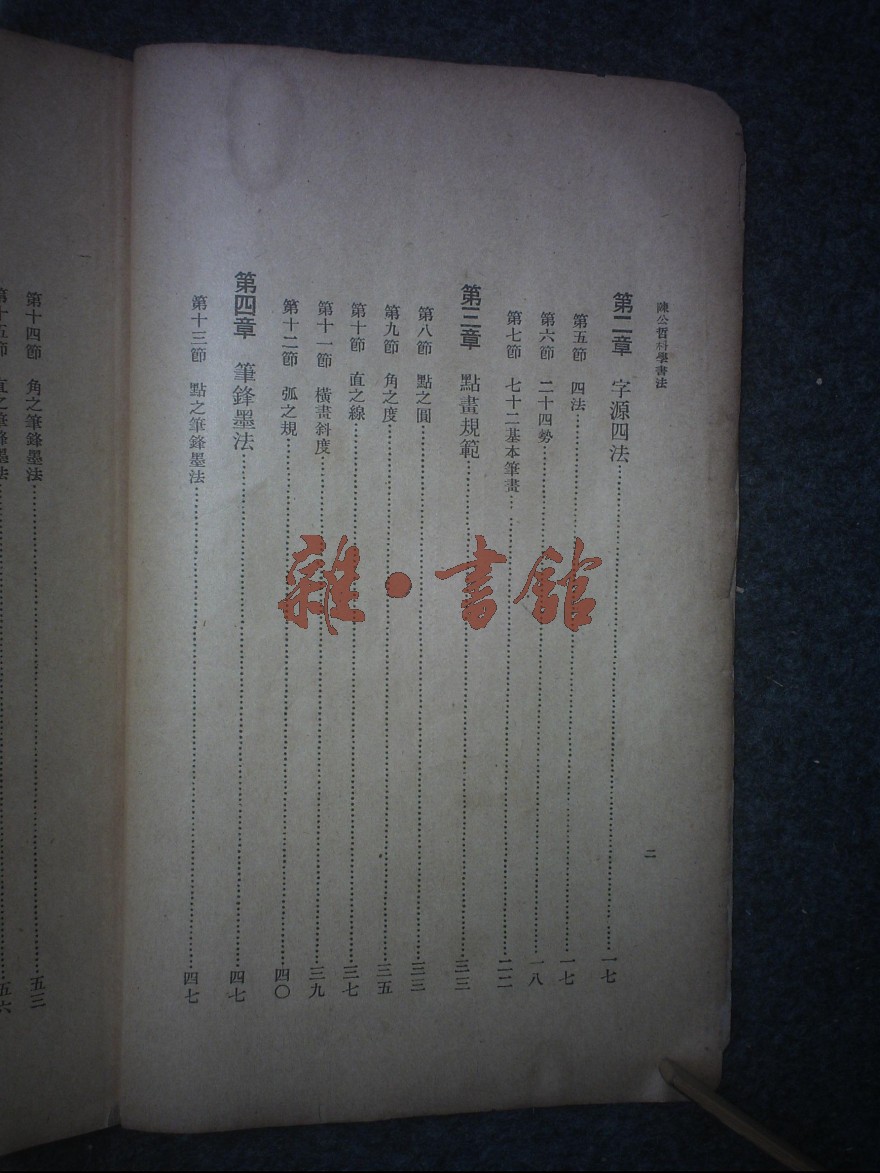 陳公哲科學書法
二
第二章 字源四法……一七
第五節 四法……一七
第六節 二十四勢……一八
第七節 七十二基本筆畫……二二
第三章 點畫規範……三三
第八節 點之圓……三三
第九節 角之度……三五
第十節 直之線……三七
第十一節 橫畫斜度……三九
第十二節 弧之規……四〇
第四章 筆鋒墨法……四七
第十三節 點之筆鋒墨法……四七
一
第十四節 角之筆鋒墨法……五三
第十五節 直之筆鋒墨法……五六
雜·書館